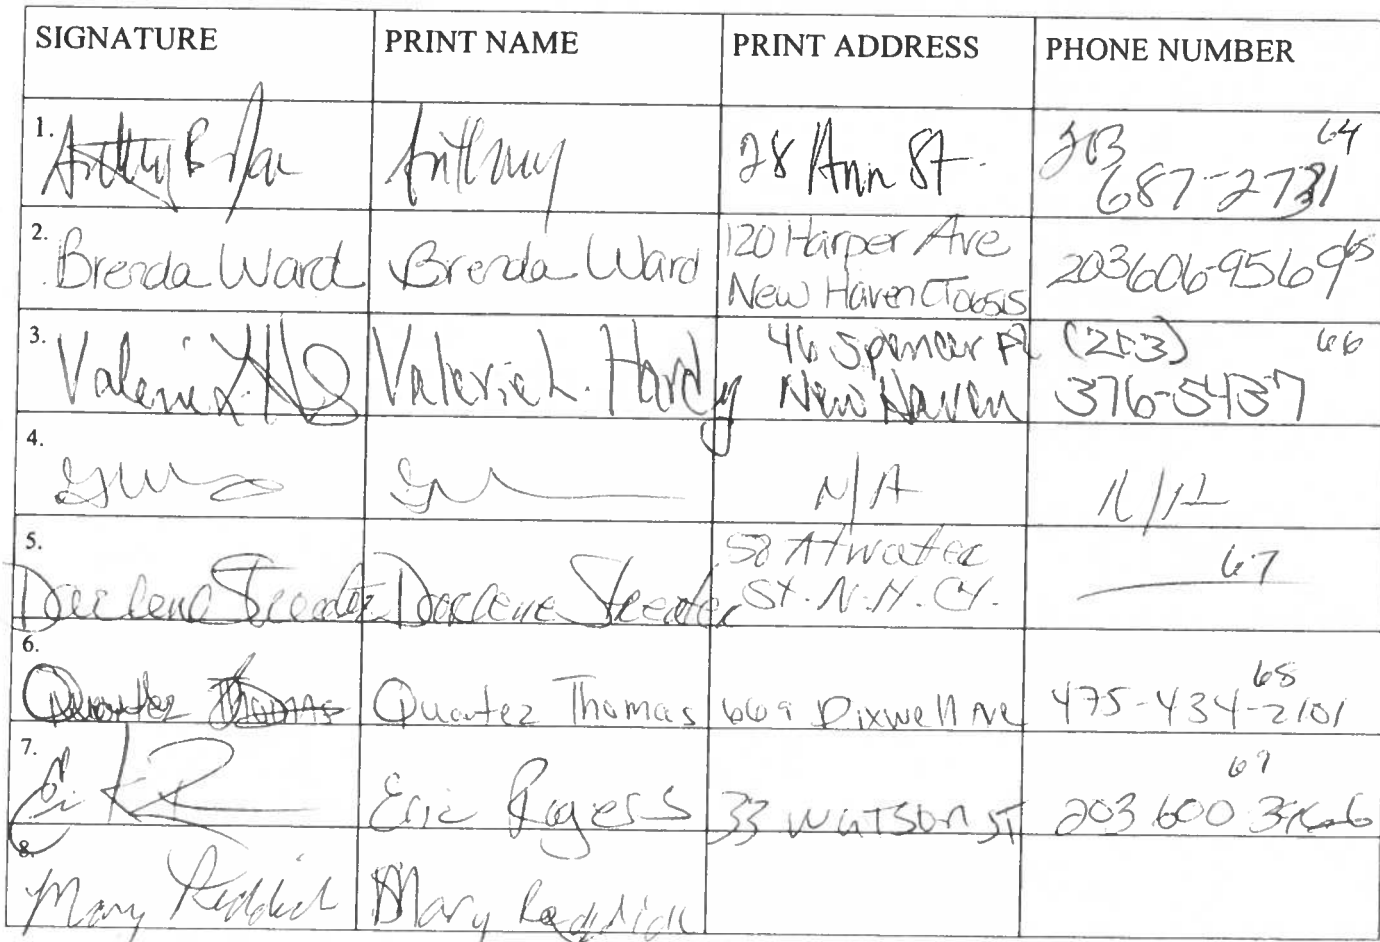 SIGNATURE PRINT NAME PRINT ADDRESS PHONE NUMBER
1. Anthony B Anthony 28 Ann St. 203 64
687-2731
2. Brenda Ward Brenda Ward 120 Harper Ave
New Haven CT 06515 203 606-9569 65
3. Valerie L. Valerie L. Hardy 46 Spencer Pl (203) 66
New Haven 376-5437
4. N/A N/A
5. Darlene Streater Darlene Streater 58 Atwater 67
St. N.H. CT.
6. Quartez Thomas Quartez Thomas 669 Dixwell Ave 475-434-2101 68
7. Eric Rogers 33 WATSON ST 203 600 69
8. Mary Reddick Mary Reddick